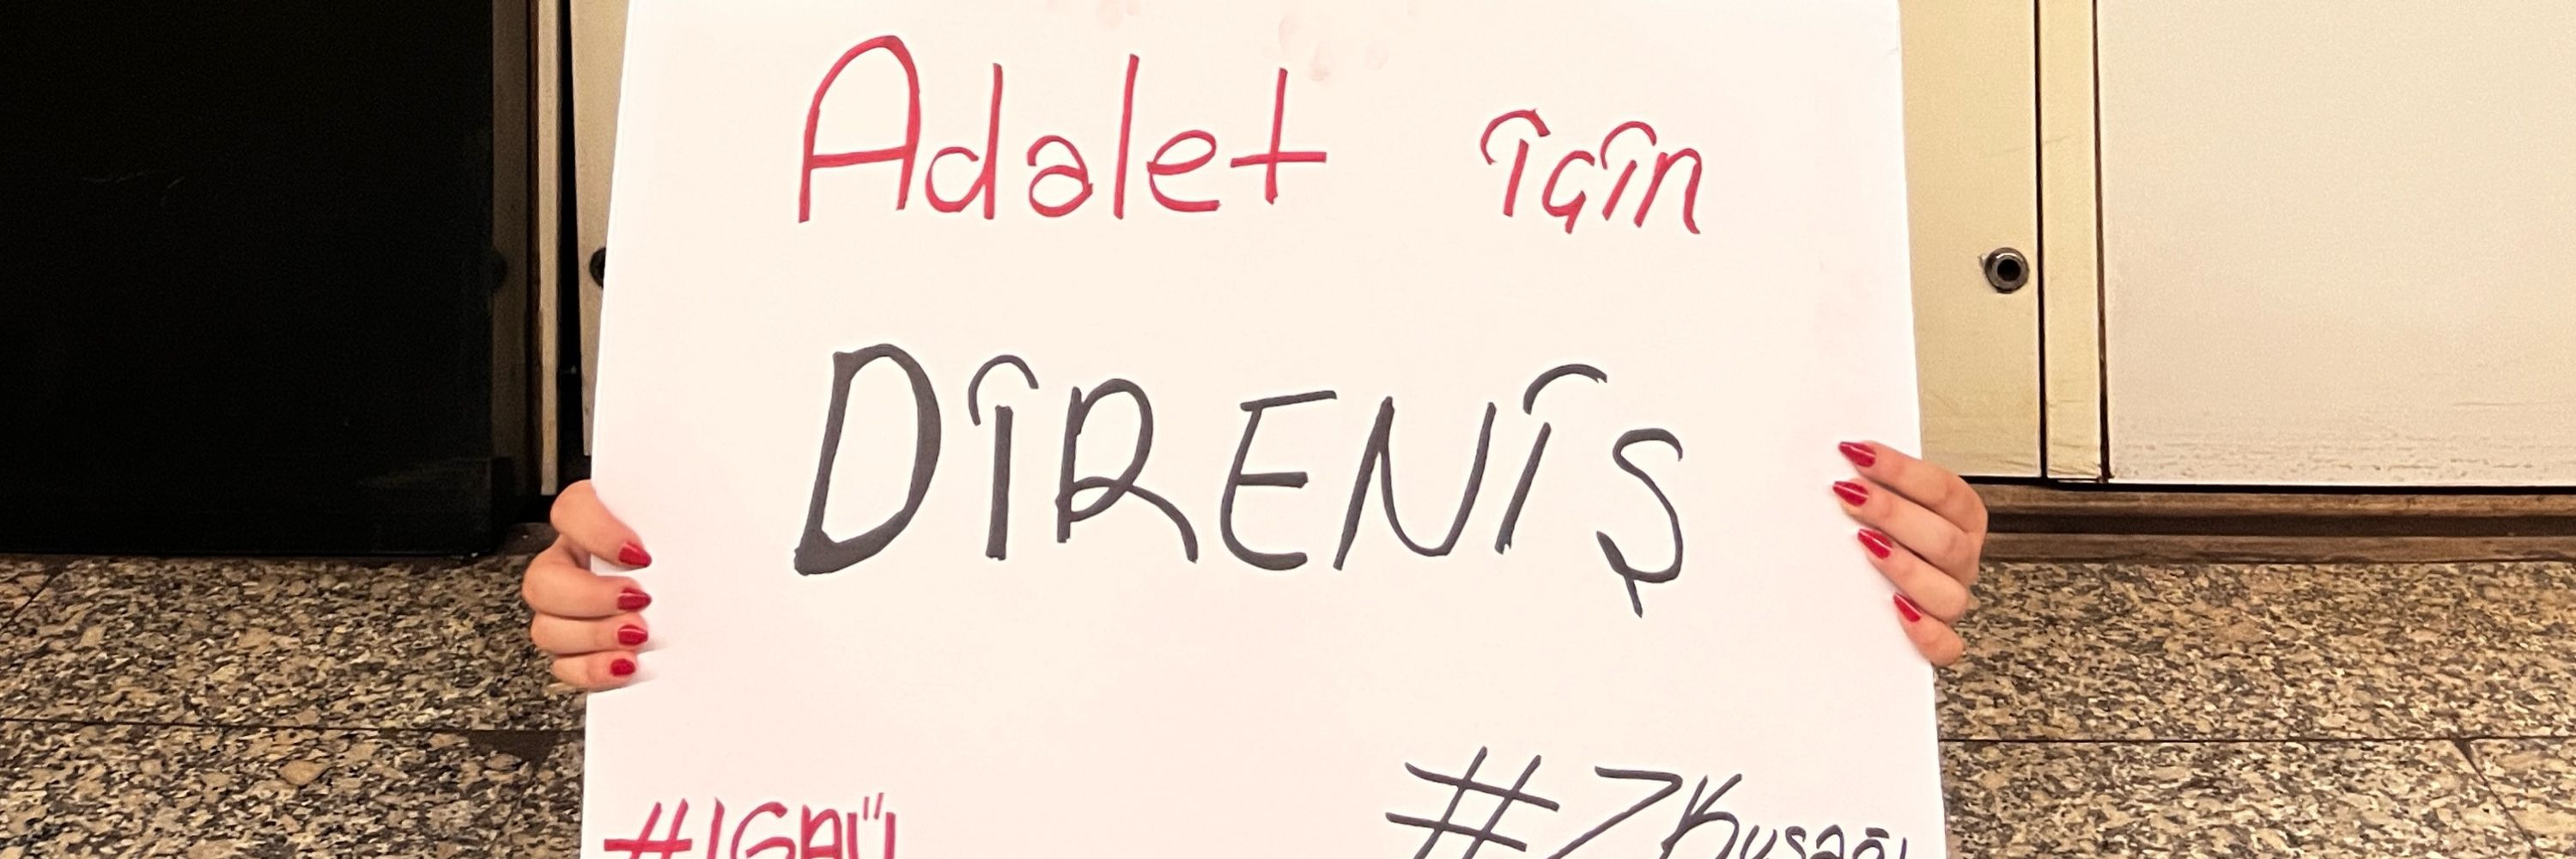 Adalet için
DİRENİŞ
#IGAÜ #ZKuşağı